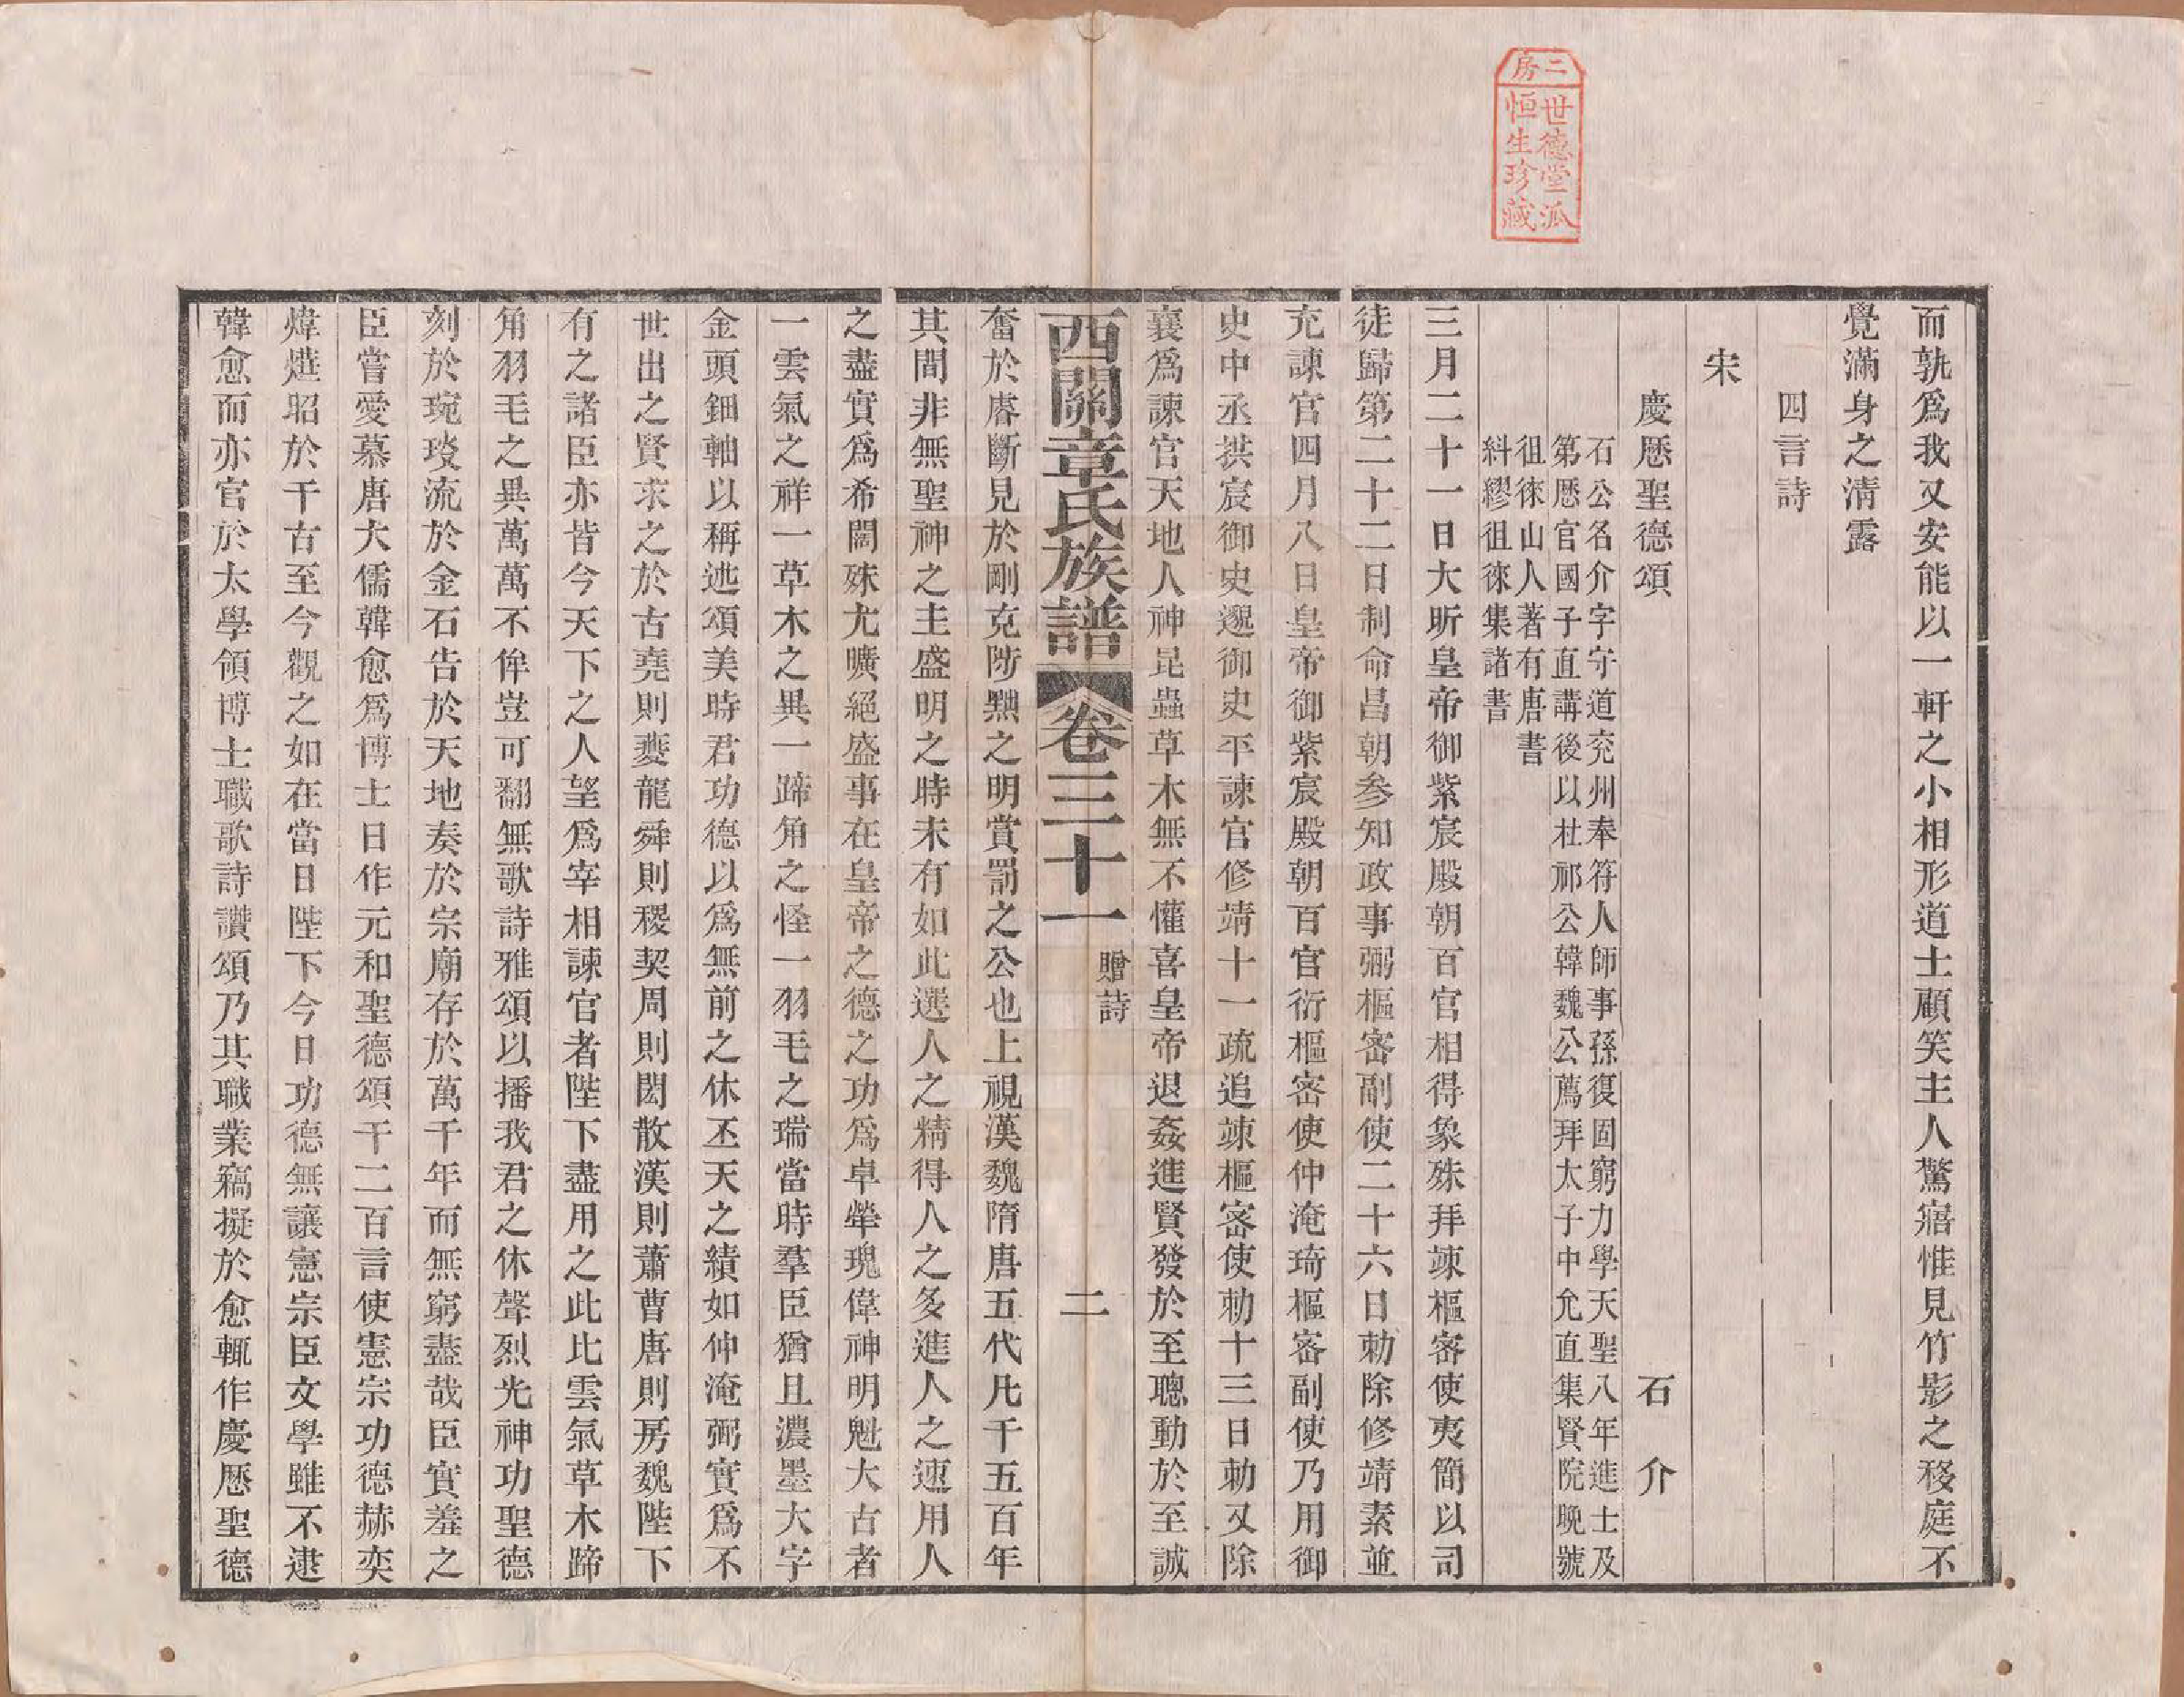 二房
世德堂派
恒生珍藏
而孰爲我又安能以一軒之小相形道士顧笑主人驚寤惟見竹影之移庭不
覺滿身之清露
四言詩
宋
慶厯聖德頌　石介
石公名介字守道兖州奉符人師事孫復固窮力學天聖八年進士及
第厯官國子直講後以杜祁公韓魏公薦拜太子中允直集賢院晚號
徂徠山人著有唐書
糾繆徂徠集諸書
三月二十一日大昕皇帝御紫宸殿朝百官相得象殊拜竦樞密使夷簡以司
徒歸第二十二日制命昌朝参知政事弼樞密副使二十六日勅除修靖素並
充諫官四月八日皇帝御紫宸殿朝百官衍樞密使仲淹琦樞密副使乃用御
史中丞拱宸御史邈御史平諫官修靖十一疏追竦樞密使勅十三日勅又除
襄爲諫官天地人神昆蟲草木無不懽喜皇帝退姦進賢發於至聰動於至誠
西關章氏族譜　卷三十一　贈詩　二
奮於睿斷見於剛克陟黜之明賞罰之公也上視漢魏隋唐五代凡千五百年
其間非無聖神之主盛明之時未有如此選人之精得人之多進人之速用人
之盡實爲希闊殊尤曠絕盛事在皇帝之德之功爲卓犖瑰偉神明魁大古者
一雲氣之祥一草木之異一蹄角之怪一羽毛之瑞當時羣臣猶且濃墨大字
金頭鈿軸以稱述頌美時君功德以爲無前之休丕天之績如仲淹弼實爲不
世出之賢求之於古堯則夔龍舜則稷契周則閎散漢則蕭曹唐則房魏陛下
有之諸臣亦皆今天下之人望爲宰相諫官者陛下盡用之此比雲氣草木蹄
角羽毛之異萬萬不侔豈可翻無歌詩雅頌以播我君之休聲烈光神功聖德
刻於琬琰流於金石告於天地奏於宗廟存於萬千年而無窮盡哉臣實羞之
臣嘗愛慕唐大儒韓愈爲博士日作元和聖德頌千二百言使憲宗功德赫奕
煒燁昭於千古至今觀之如在當日陛下今日功德無讓憲宗臣文學雖不逮
韓愈而亦官於太學領博士職歌詩讚頌乃其職業竊擬於愈輒作慶厯聖德